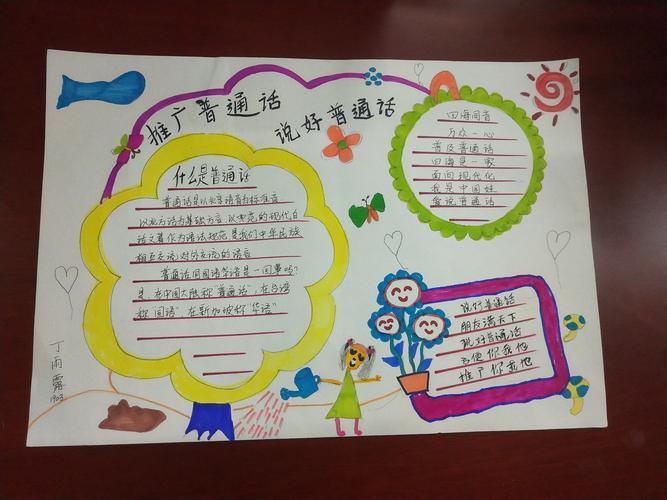 推广普通话
说好普通话
什么是普通话
普通话是以北京语音为标准音
以北方话为基础方言 以典范的现代白
话文著作为语法规范 是我们中华民族
相互交流 对外交流的语言
普通话同国语华语是一回事吗?
是 在中国大陆称"普通话", 在台湾
称"国语" 在新加坡称"华语"
四海同音
万众一心
普及普通话
四海是一家
面向现代化
我是中国娃
爱说普通话
说好普通话
朋友满天下
说好普通话
方便你我他
推广你我他
丁雨露
1903